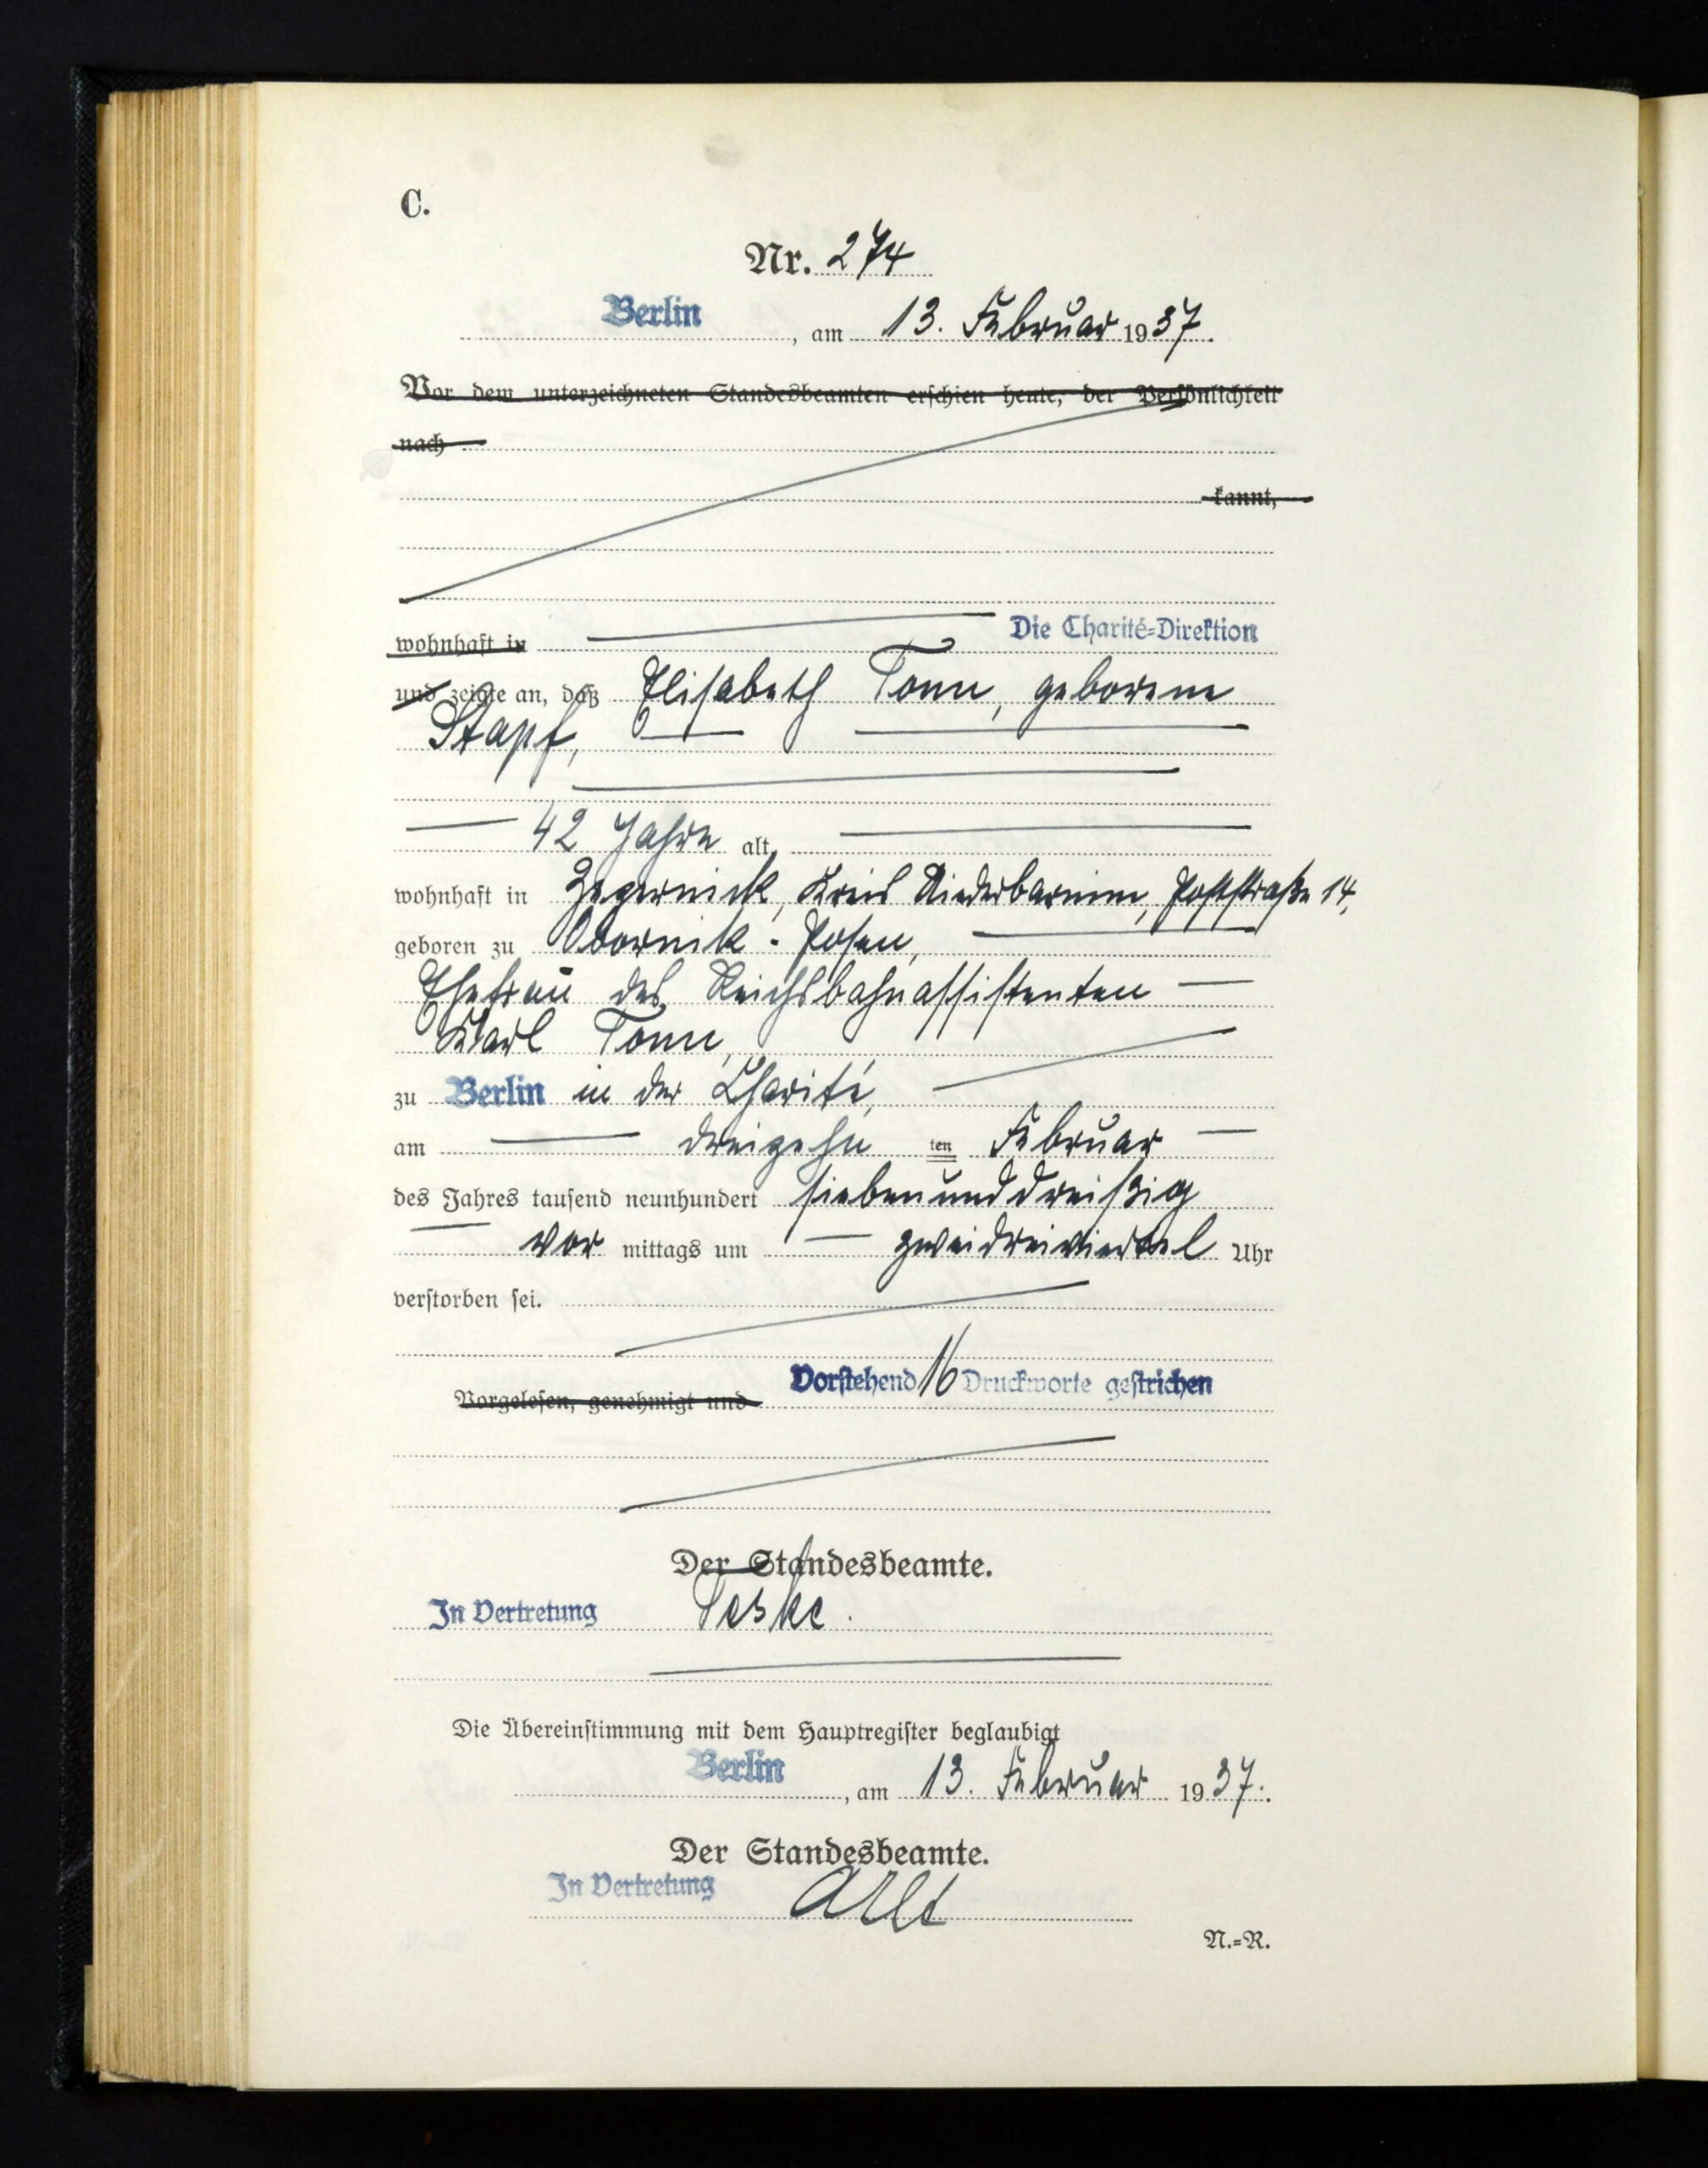 C.
Nr. 274
Berlin, am 13. Februar 1937.
Vor dem unterzeichneten Standesbeamten erschien heute, der Persönlichkeit
nach
kannt,
wohnhaft in Die Charité-Direktion
und zeigte an, daß Elisabeth Tonn, geborene
Stapf,
42 Jahre alt,
wohnhaft in Zepernick, Kreis Niederbarnim, Poststraße 14,
geboren zu Obornik - Posen,
Ehefrau des Reichsbahnassistenten
Karl Tonn,
zu Berlin in der Charité,
am dreizehn ten Februar
des Jahres tausend neunhundert siebenunddreißig
vor mittags um zweidreiviertel Uhr
verstorben sei.
Vorstehend 16 Druckworte gestrichen
Vorgelesen, genehmigt und
Der Standesbeamte.
In Vertretung Teske.
Die Übereinstimmung mit dem Hauptregister beglaubigt
Berlin, am 13. Februar 1937.
Der Standesbeamte.
In Vertretung
N.-R.